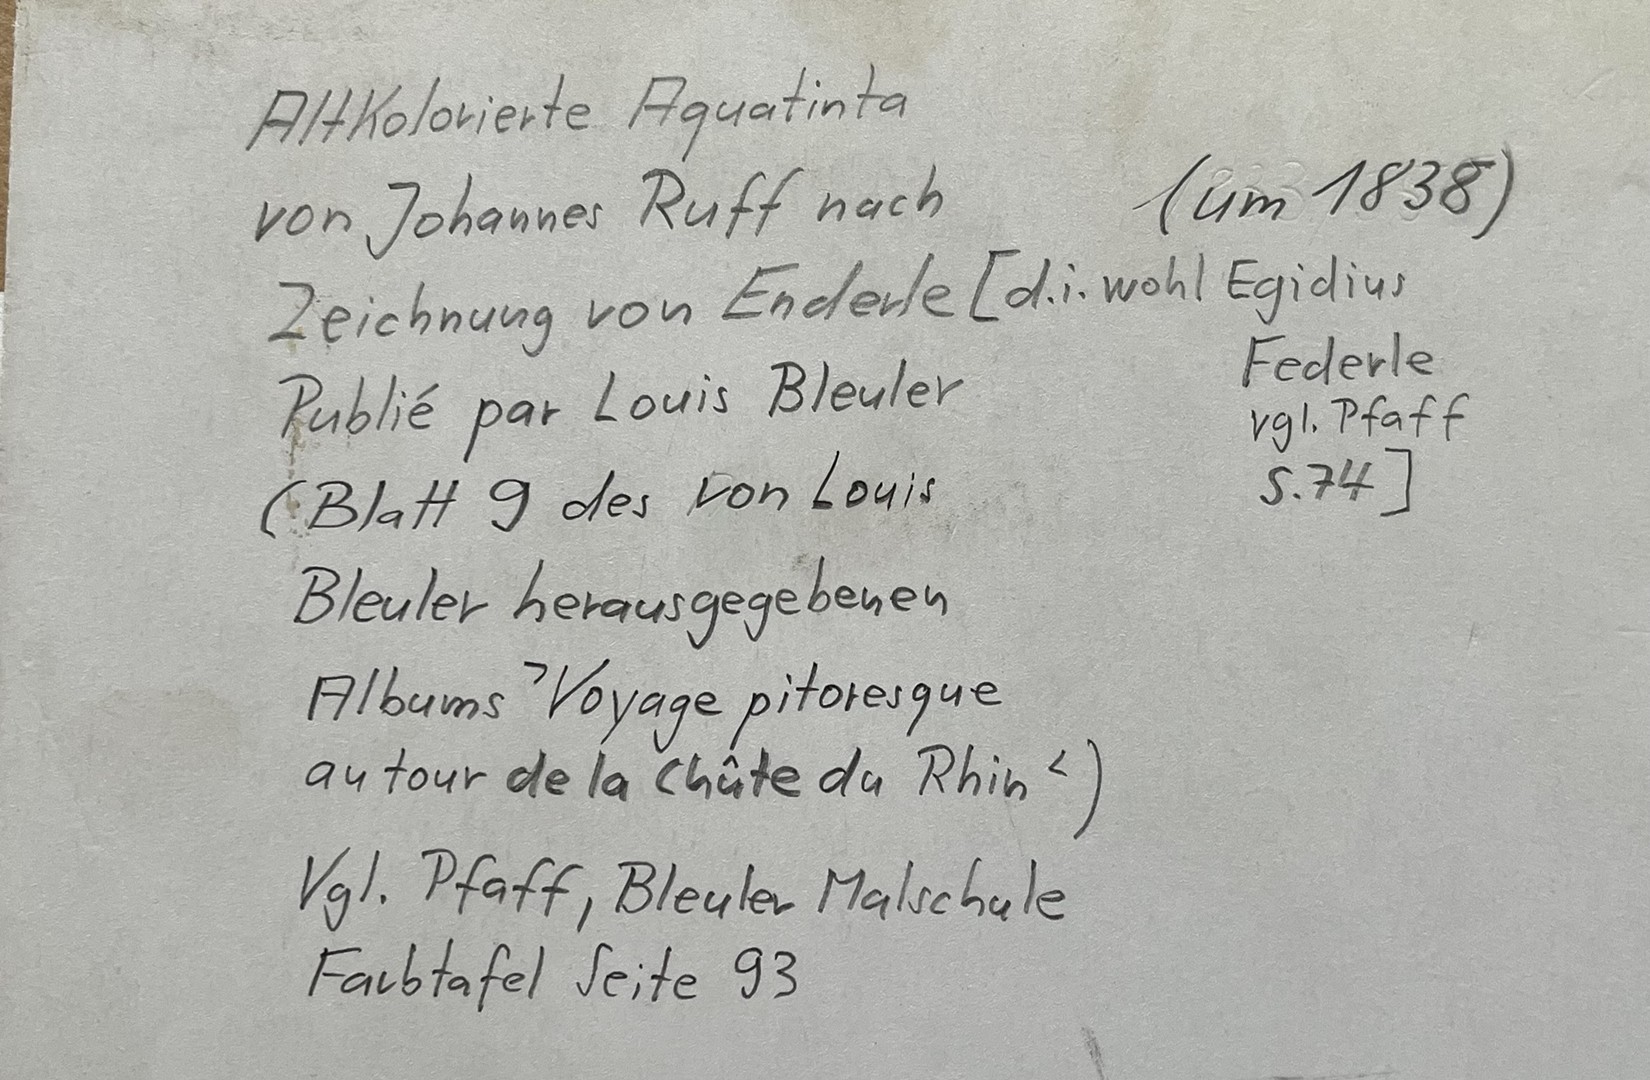 Altkolorierte Aquatinta
von Johannes Ruff nach (um 1838)
Zeichnung von Enderle [d.i. wohl Egidius
Federle
Publié par Louis Bleuler
vgl. Pfaff
(Blatt 9 des von Louis
S. 74]
Bleuler herausgegebenen
Albums >Voyage pitoresque
autour de la Chûte du Rhin<)
Vgl. Pfaff, Bleuler Malschule
Farbtafel Seite 93